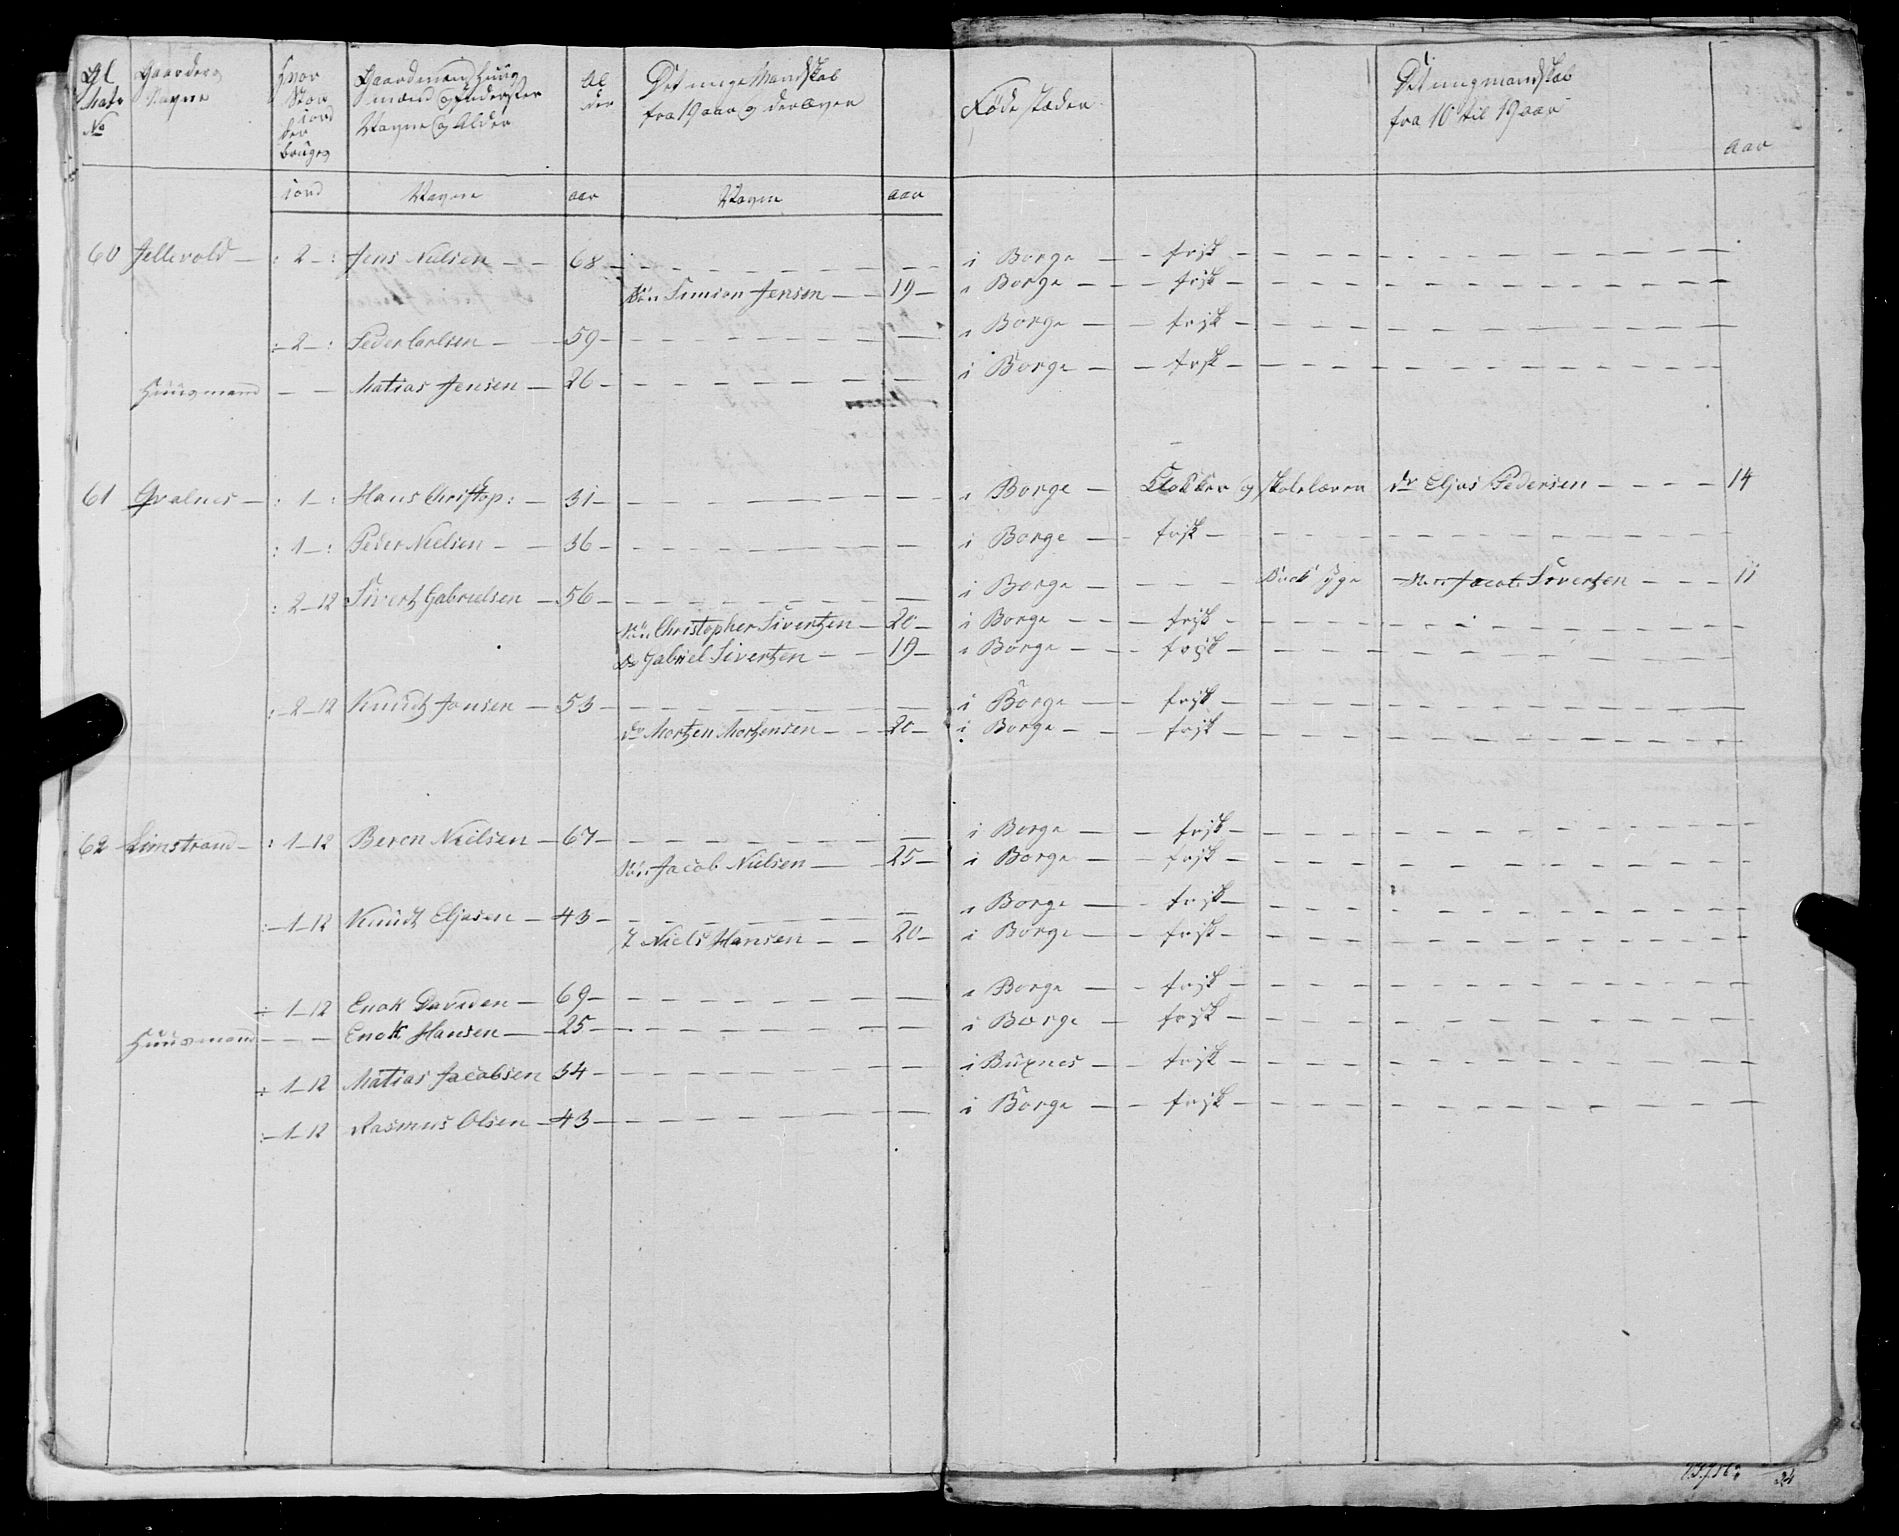 Gl Matr No | Gaardens Nagne | Hvor Stor iord der bruges | Gaardmænd Huus mænd og Inderster Nagne og Alder | Al der | Det unge Mandskab fra 19 aar og derover | Føde stæder | Det ung mandskab fra 10 til 19 aar | aar
iord | Nagne | aar | Nagne | aar
60 Jellevold — : 2 — : Jens Nielsen — — 68 — i Borge — frisk
Søn Simion Jensen — 19 — i Borge — frisk
: 2 — : Peder Carlsen — 59 — i Borge — frisk
Huusmand — — Matias Jensen — 26 — i Borge — frisk
61 Qvalnes — : 1 — : Hans Christop: — 31 — i Borge — Klokker og skolelærer — dr Eljas Pedersen — 14
: 1 — : Peder Nielsen — 36 — i Borge — frisk
: 2 — 12 Sivertz Gabrielsen — 56 — i Borge — syge — Jacob Sivertzen — 11
Søn Christopher Sivertzen — 20 — i Borge — frisk
do Gabriel Sivertzen — 19 — i Borge — frisk
: 2 — 12 Knudtz Jonsen — 53 — i Borge — frisk
dr Mortzen Mortzensen — 20 — i Borge — frisk
62 Limstrand — : 1 — 12 Beron Nielsen — 67 — i Borge — frisk
Søn Jacob Nielsen — 25 — i Borge — frisk
: 1 — 12 Knudtz Eljasen — 43 — i Borge — frisk
Niels Hansen — 20 — i Borge — frisk
: 1 — 12 Enok Davidsen — 69 — i Borge — frisk
Huusmand — — — Enok Hansen — 25 — i Borge — frisk
: 1 — 12 Matias Jacobsen 34 — i Buxnes — frisk
: 1 — 12 Rasmus Olsen — 43 — i Borge — frisk
24